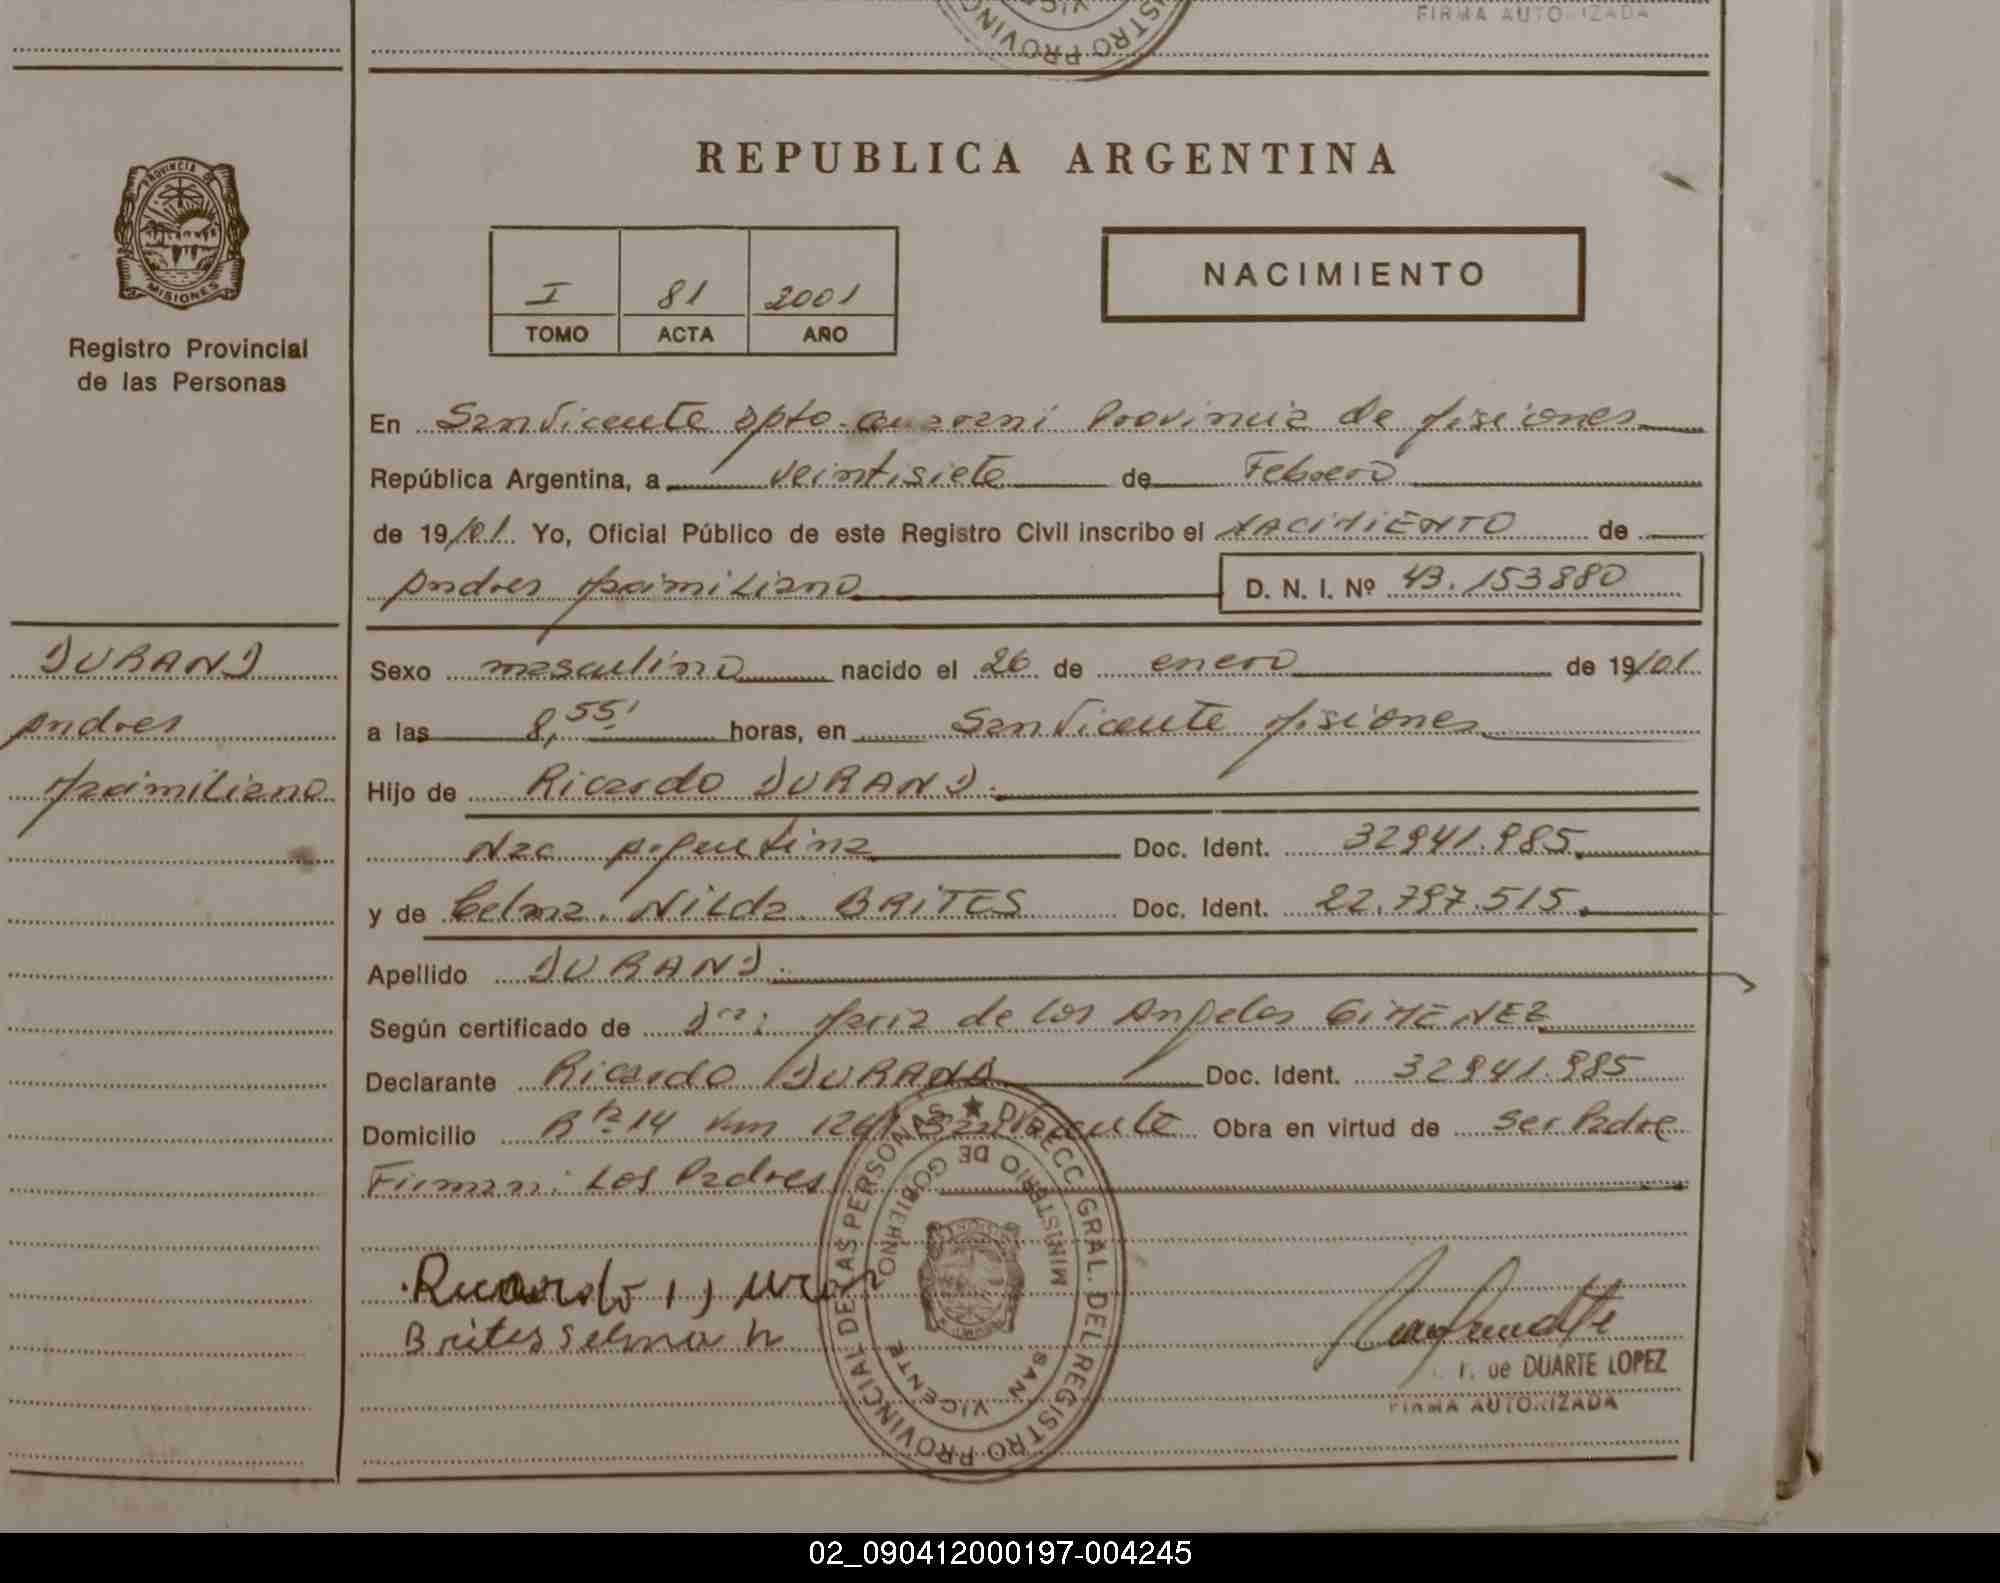 FIRMA AUTORIZADA
REGISTRO PROVINC
VIC
PROVINCIA
MISIONES
Registro Provincial
de las Personas
REPUBLICA ARGENTINA
I 81 2001
TOMO ACTA AÑO
NACIMIENTO
En San Vicente Dpto. Guarani Provincia de Misiones
República Argentina, a veintisiete de Febrero
de 19/01. Yo, Oficial Público de este Registro Civil inscribo el NACIMIENTO de
Andres Maximiliano D. N. I. Nº 43.153880
DURAND
Andres
Maximiliano
Sexo masculino nacido el 26 de enero de 19/01
a las 8,55' horas, en San Vicente Misiones
Hijo de Ricardo DURAND.
Nac Argentina Doc. Ident. 32941.985.
y de Celma Nilda BRITES Doc. Ident. 22.797.515.
Apellido DURAND.
Según certificado de Dra: Maria de Los Angeles GIMENEZ
Declarante Ricardo DURAND Doc. Ident. 32941.985
Domicilio Rta 14 Km 1261 San Vicente Obra en virtud de Ser Padre
Firman: Los Padres
Ricardo Duran
Brites Selma N
DIRECC. GRAL. DEL REGISTRO PROVINCIAL DE LAS PERSONAS
MINISTERIO DE GOBIERNO
SAN VICENTE
de DUARTE LOPEZ
FIRMA AUTORIZADA
02_090412000197-004245